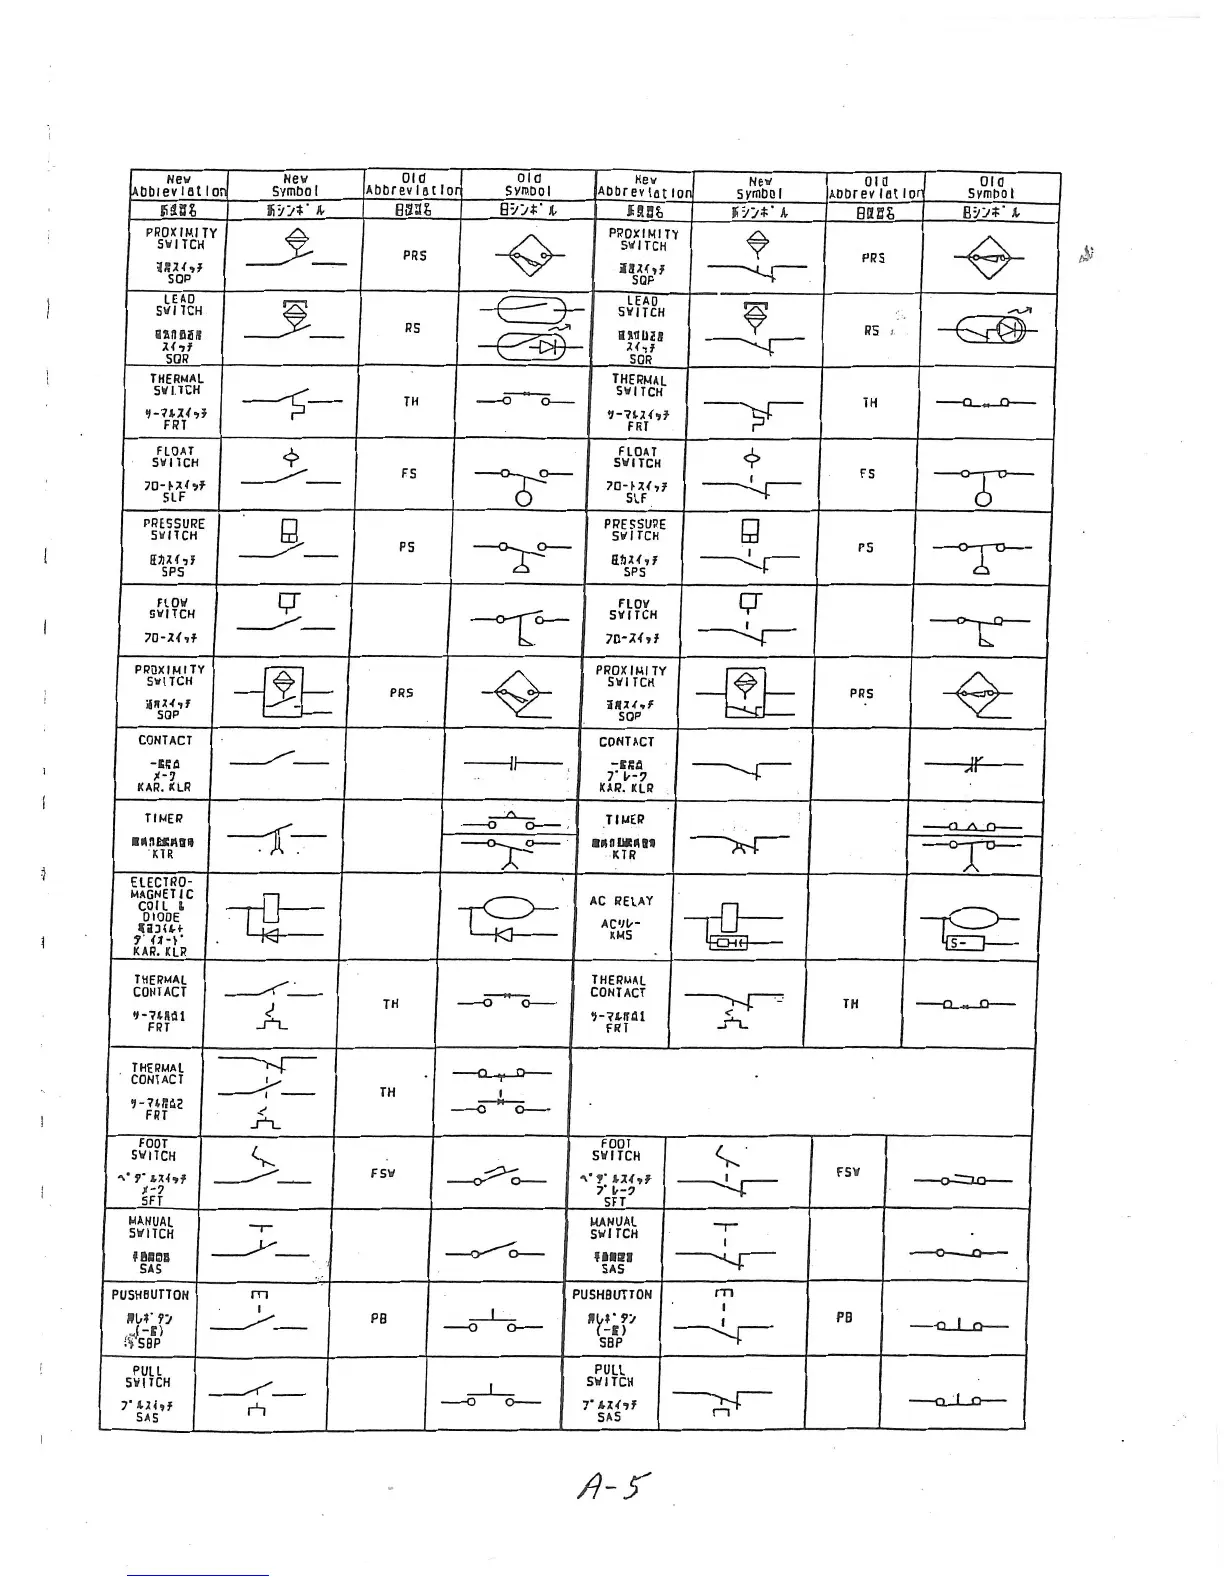 New Abbieviation New Symbol Old Abbreviation Old Symbol New Abbreviation New Symbol Old Abbreviation Old Symbol
新シンボル 旧シンボル 新シンボル 旧シンボル
PROXIMITY SWITCH
スイッチ
SQP
PRS
PROXIMITY SWITCH
スイッチ
SQP
PRS
LEAD SWITCH
スイッチ
SQR
RS
LEAD SWITCH
スイッチ
SQR
RS
THERMAL SWITCH
サーマルスイッチ
FRT
TH
THERMAL SWITCH
サーマルスイッチ
FRT
TH
FLOAT SWITCH
フロートスイッチ
SLF
FS
FLOAT SWITCH
フロートスイッチ
SLF
FS
PRESSURE SWITCH
圧力スイッチ
SPS
PS
PRESSURE SWITCH
圧力スイッチ
SPS
PS
FLOW SWITCH
フロースイッチ
FLOW SWITCH
フロースイッチ
PROXIMITY SWITCH
スイッチ
SQP
PRS
PROXIMITY SWITCH
スイッチ
SQP
PRS
CONTACT
メーク
KAR. KLR
CONTACT
ブレーク
KAR. KLR
TIMER
KTR
TIMER
KTR
ELECTRO-
MAGNETIC
COIL &
DIODE
ダイオード
KAR. KLR
AC RELAY
ACリレー
KMS
S-
THERMAL CONTACT
サーマル接点1
FRT
TH
THERMAL CONTACT
サーマル接点1
FRT
TH
THERMAL CONTACT
サーマル接点2
FRT
TH
FOOT SWITCH
ペダルスイッチ
メーク
SFT
FSW
FOOT SWITCH
ペダルスイッチ
ブレーク
SFT
FSW
MANUAL SWITCH
SAS
MANUAL SWITCH
SAS
PUSHBUTTON
押しボタン
SBP
PB
PUSHBUTTON
押しボタン
SBP
PB
PULL SWITCH
プルスイッチ
SAS
PULL SWITCH
プルスイッチ
SAS
A-5